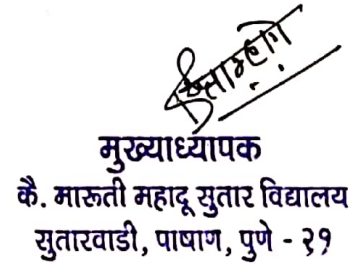 मुख्याध्यापक
कै. मारुती महादू सुतार विद्यालय
सुतारवाडी, पाषाण, पुणे - २१